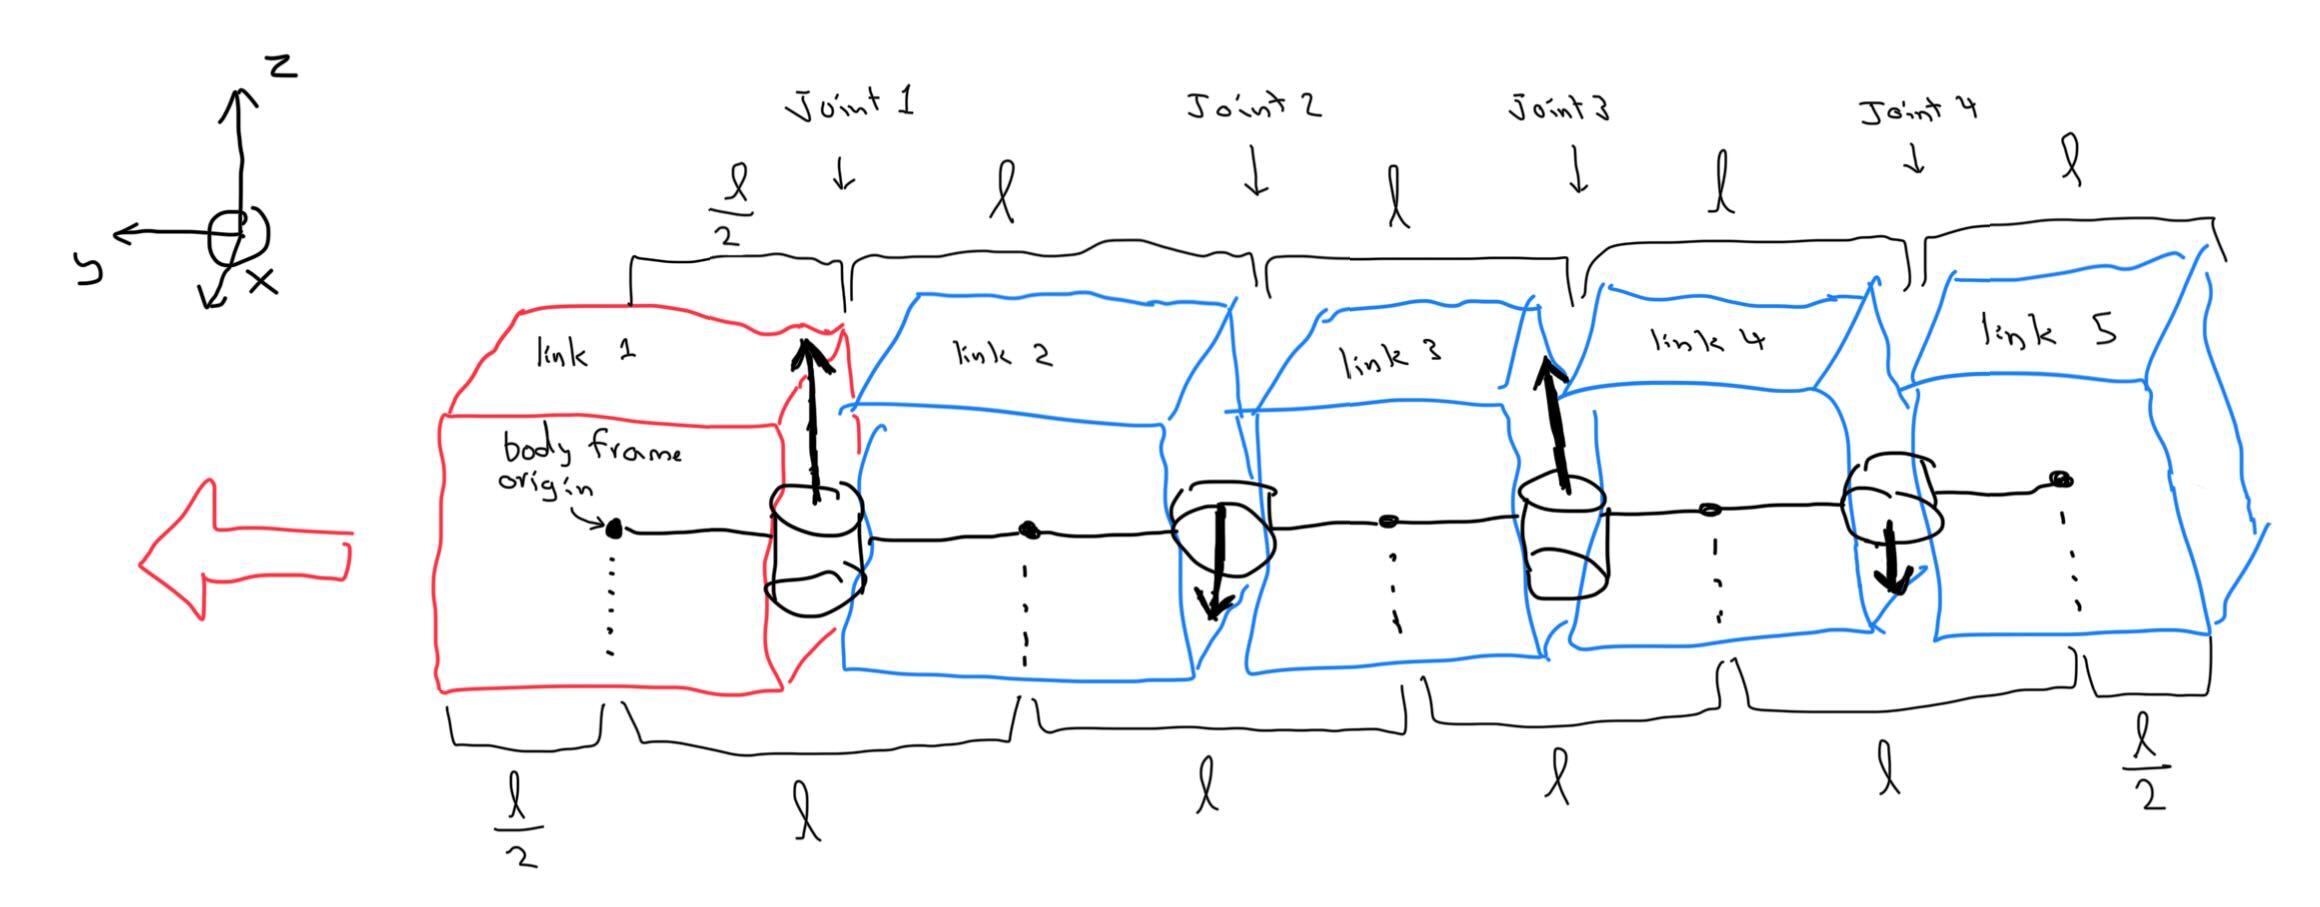 z
y
x
Joint 1
Joint 2
Joint 3
Joint 4
ℓ/2
ℓ
ℓ
ℓ
ℓ
link 1
link 2
link 3
link 4
link 5
body frame
origin
ℓ/2
ℓ
ℓ
ℓ
ℓ
ℓ/2